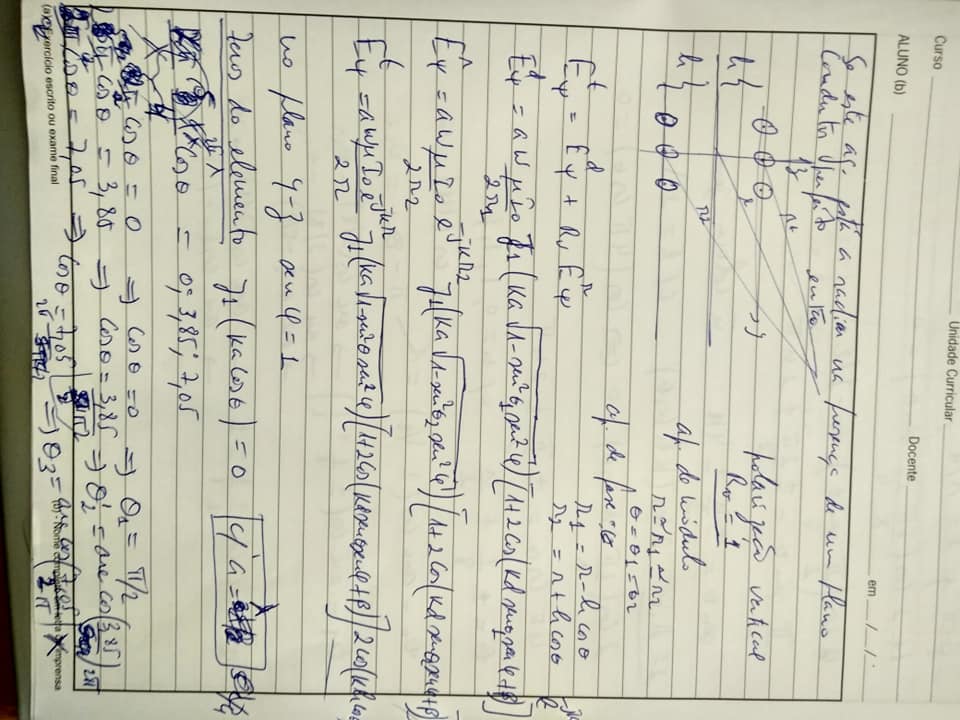 Unidade Curricular
Curso
Docente
ALUNO (b)
em / /
Se este ag. está a radiar na presença de um plano
Condutor perfeito então
z
r1
y
r
h
r2
h
polarização vertical
Rv = 1
ap. de módulo
r ≃ r1 ≃ r2
θ = θ1 = θ2
ap. de fase
r1 = r - h cos θ
r2 = r + h cos θ
E^t_ψ = E^d_ψ + Rv E^r_ψ
E^d_ψ = a w μ I0 / 2r1 J1 (Ka √1-sen²θ1 sen²φ) [1+2 Cos(Kd senθ1 senφ + β)]
E^r_ψ = a w μ I0 e^-jkr2 / 2r2 J1 (Ka √1-sen²θ2 sen²φ) [1+2 Cos(Kd senθ2 senφ + β)
E^t_ψ = a w μ I0 e^-jkr / 2r J1 (Ka √1-sen²θ sen²φ) [1+2Cos(Kd senθ senφ + β)] 2 cos(Kh cos
no plano y-z sen φ = 1
Zeros do elemento J1 (Ka cos θ) = 0
Cos θ = 0; 3,85; 7,05
cos θ = 0 ⇒ Cos θ = 0 ⇒ θ1 = π/2
cos θ = 3,85 ⇒ Cos θ = 3,85 ⇒ θ2 = arc cos(3,85 / 2π
Cos θ = 7,05 ⇒ Cos θ = 7,05 / 2π ⇒ θ3 = arc cos(7,05 / 2π) X
(a) Exercício escrito ou exame final
(b) - Nome completo em letra de imprensa